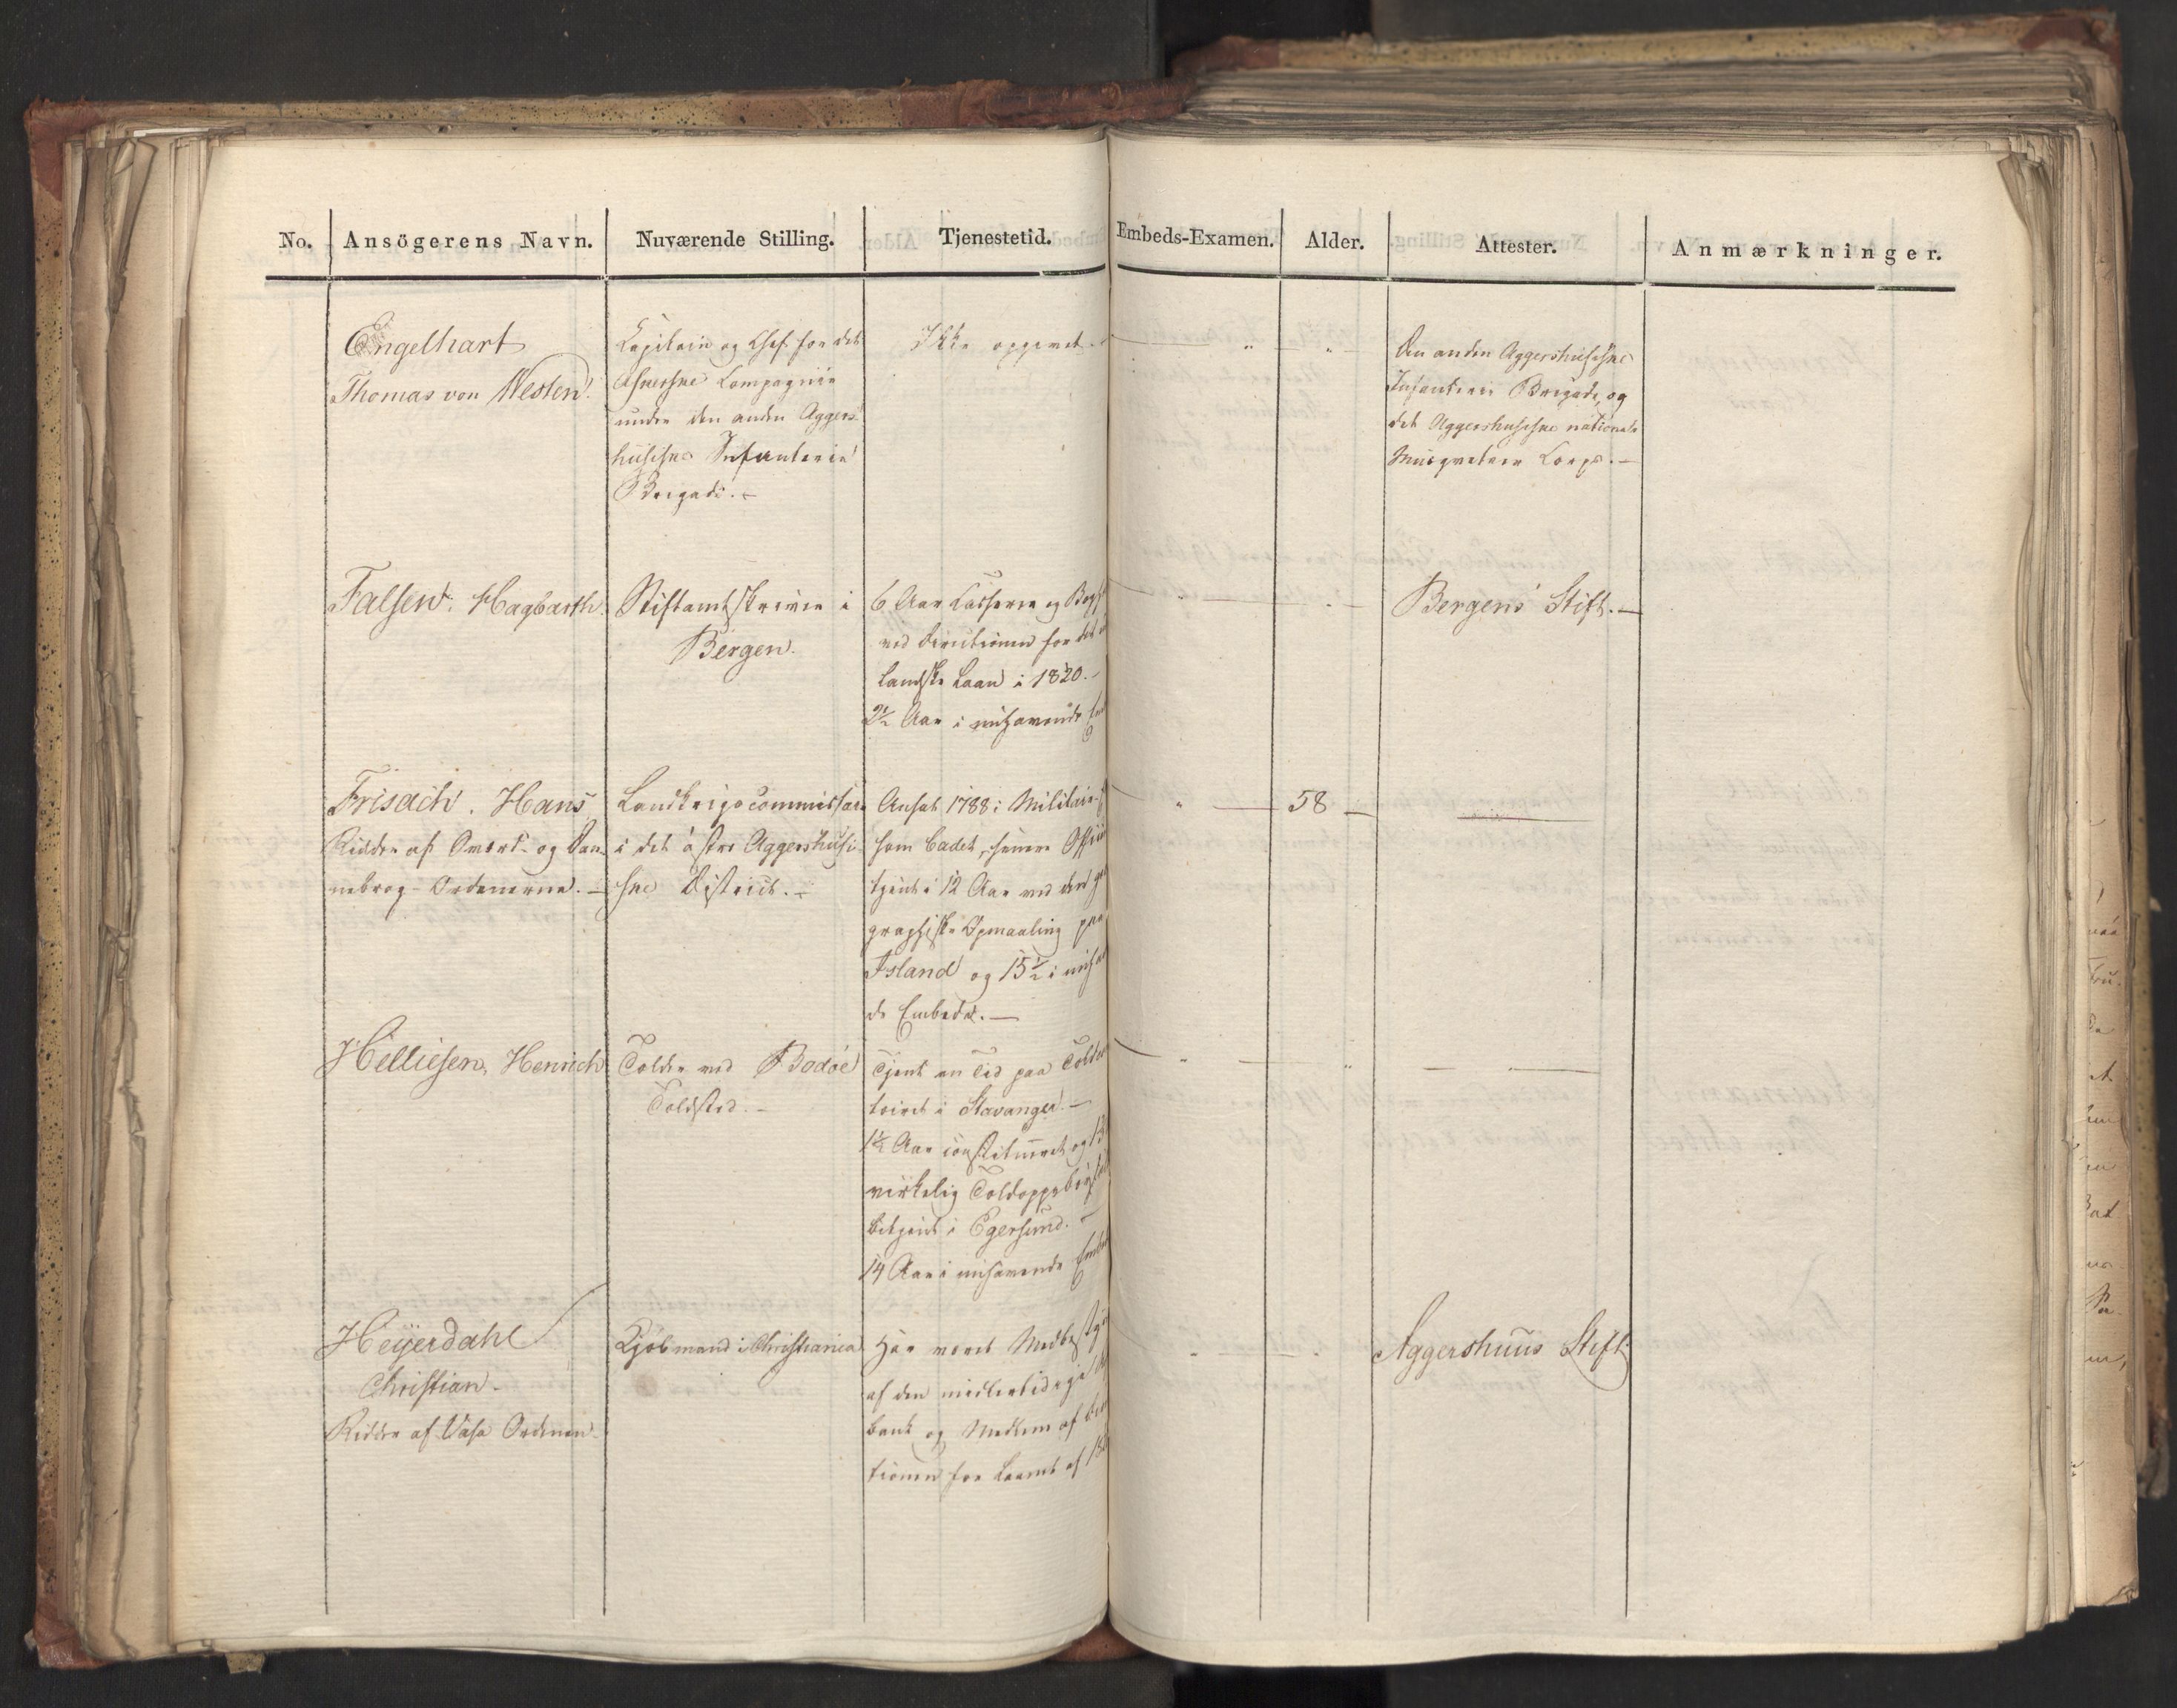 No. Ansögerens Navn. Nuværende Stilling. Tjenestetid. Embeds-Examen. Alder. Attester. Anmærkninger.
Engelhart
Thomas von Westen.
Capitain og Chef for det
Askerske Compagnie
under den anden Aggers-
husiske Infanterie
Brigade. –
Ikke opgivet. –
" – " –
Den anden Aggershusiske
Infanterie Brigade, og
det Aggershusiske nationale
Musqueteer Corps. –
Falsen. Hagbarth.
Stiftamtskriver i
Bergen.
6 Aar Casserer og
ved Directionen for det
landske Laan i 1820. –
2½ Aar i nuhavende
" – " –
Bergens Stift. –
Frisach. Hans
Ridder af Sværd- og Dan-
nebrog-Ordenerne. –
Landkrigscommissair
i det östre Aggershusi-
ske District. –
Ansat 1788 i Militair-
som Cadet, senere
tjent i 12 Aar ved den
graphiske Opmaaling paa
Island og 15½ i
de Embede. –
" – 58 – –
Helliesen, Henrich
Tolder ved Bodöe
Toldsted. –
Tjent en Tid paa
toiret i Stavanger. –
1½ Aar constitueret og 13
virkelig
betjent i Egersund. –
14 Aar i nuhavende
" – " – –
Heÿerdahl
Christian.
Ridder af Vasa Ordenen.
Kjöbmand i Christiania
Har været
af den midlertidige
bank og Medlem af
tionen for Laanet af
" – " –
Aggershuus Stift.